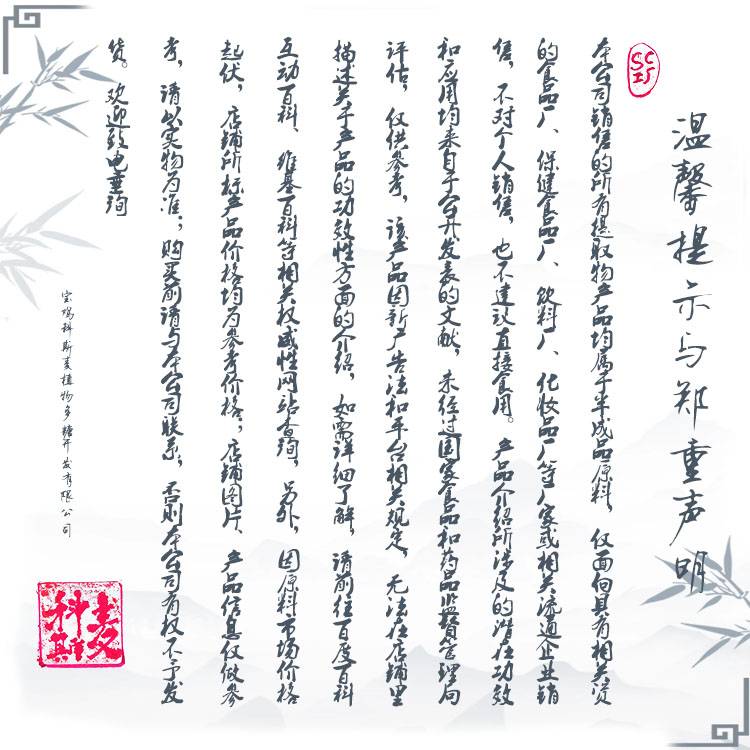 温馨提示与郑重声明
本公司销售的所有提取物产品均属于半成品原料，仅面向具有相关资
的食品厂、保健食品厂、饮料厂、化妆品厂等厂家或相关流通企业销
售，不对个人销售，也不建议直接食用。产品介绍所涉及的潜在功效
和应用均来自于公开发表的文献，未经过国家食品和药品监督管理局
评估，仅供参考，该产品因新广告法和平台相关规定，无法在店铺里
描述关于产品的功效性方面的介绍，如需详细了解，请前往百度百科
互动百科、维基百科等相关权威性网站查询，另外，因原料市场价格
起伏，店铺所标产品价格均为参考价格；店铺图片、产品信息仅做参
考，请以实物为准；购买前请与本公司联系，否则本公司有权不予发
货。欢迎致电垂询
宝鸡科斯麦植物多糖开发有限公司
科斯麦